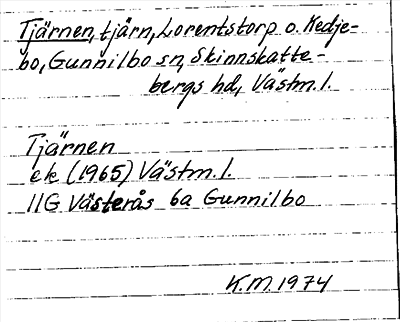 Tjärnen, tjärn, Lorentstorp o. Kedje-
bo, Gunnilbo sn, Skinnskatte-
bergs hd, Västm. l.
Tjärnen
ek (1965) Västm. l.
11G Västerås 6a Gunnilbo
K.M. 1974